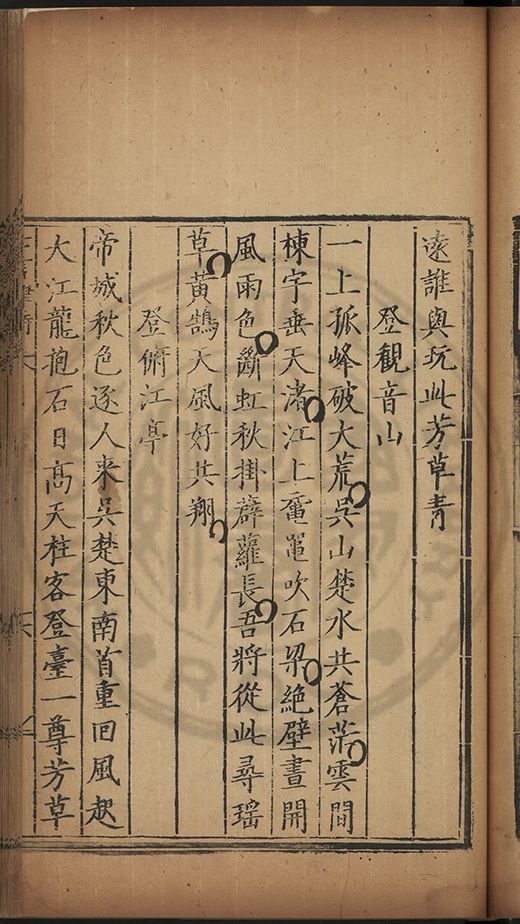 遠誰與玩此芳草青
登觀音山
一上孤峰破大荒吳山楚水共蒼茫雲間
棟宇垂天渚江上黿鼉吹石梁絕壁晝開
風雨色斷虹秋掛薜蘿長吾將從此尋瑶
草黃鵠天風好共翔
登俯江亭
帝城秋色逐人来吳楚東南首重回風起
大江龍抱石日高天柱客登臺一尊芳草